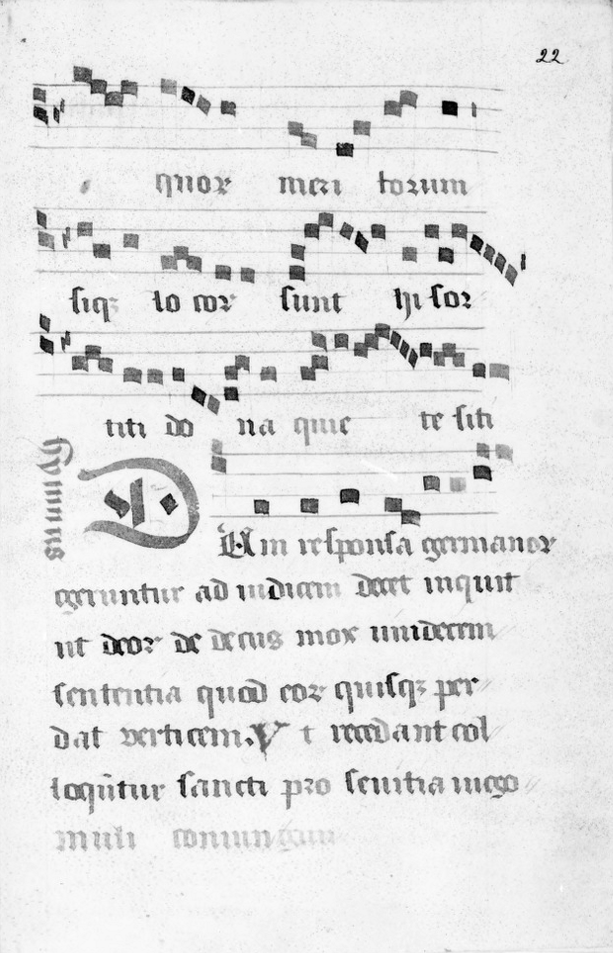 22
quor meri torum
siqꝫ lo cor sunt hi sor
titi do na quie te siti
Hymnus
DUm responsa germanor
geruntur ad iudicem decet inquit
ut deor de decus mox unidecem
sententia quod eor quisqꝫ per
dat verticem. V t recedant col
loqūtur sancti pro seuitia
muli coniun